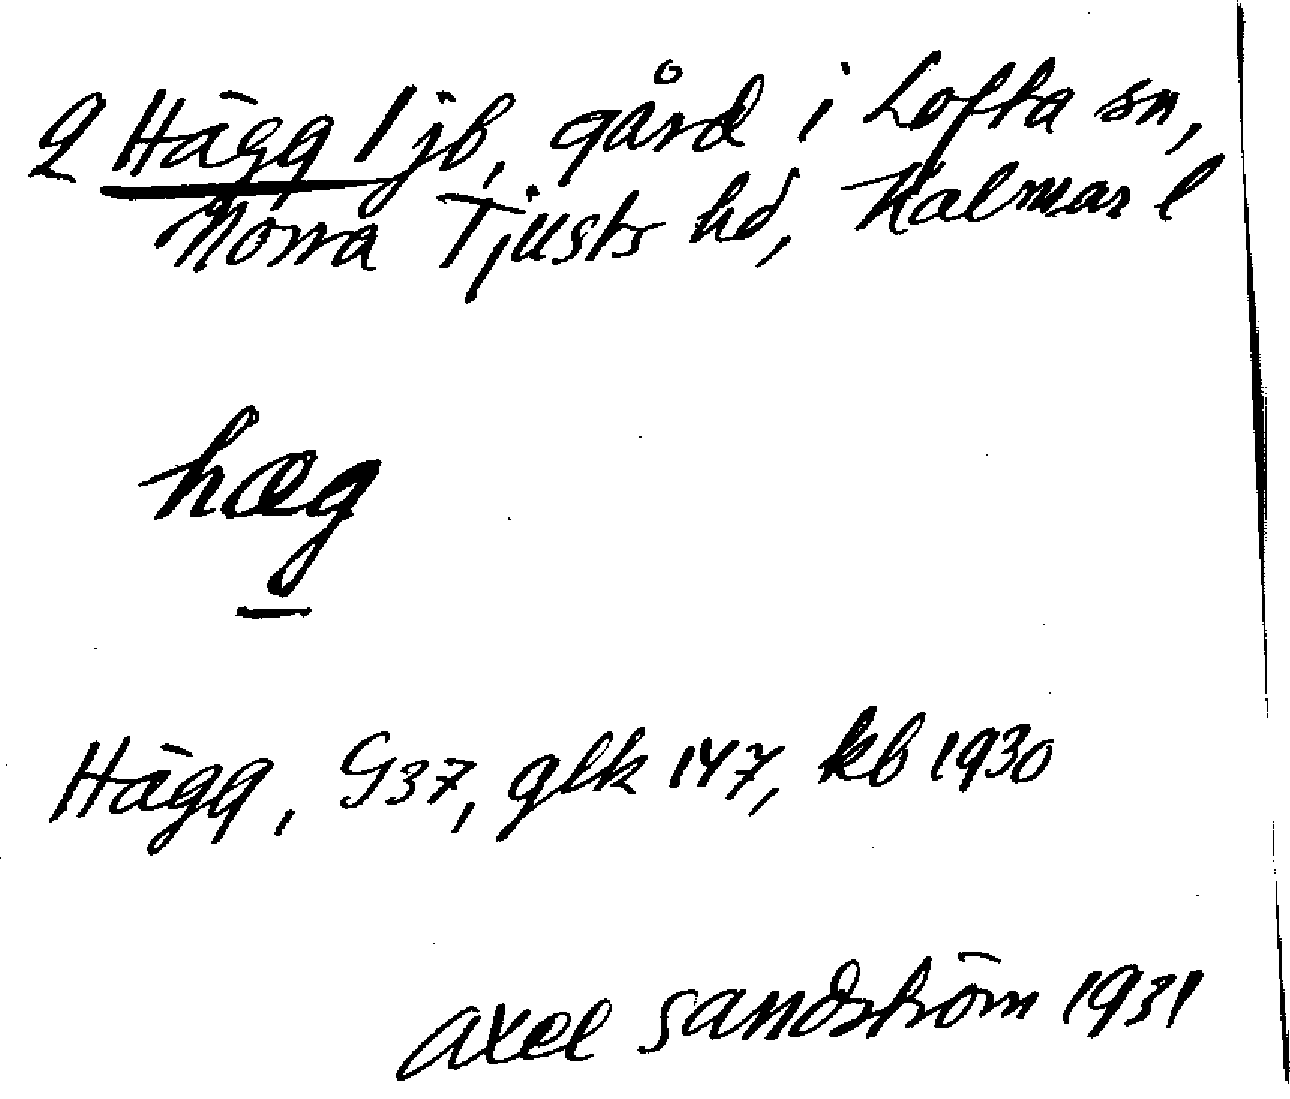 2 Hägg 1 jb, gård i Lofta sn,
Norra Tjusts hd, Kalmar l
hæg
Hägg, G37, glk 147, kb 1930
Axel Sandström 1931